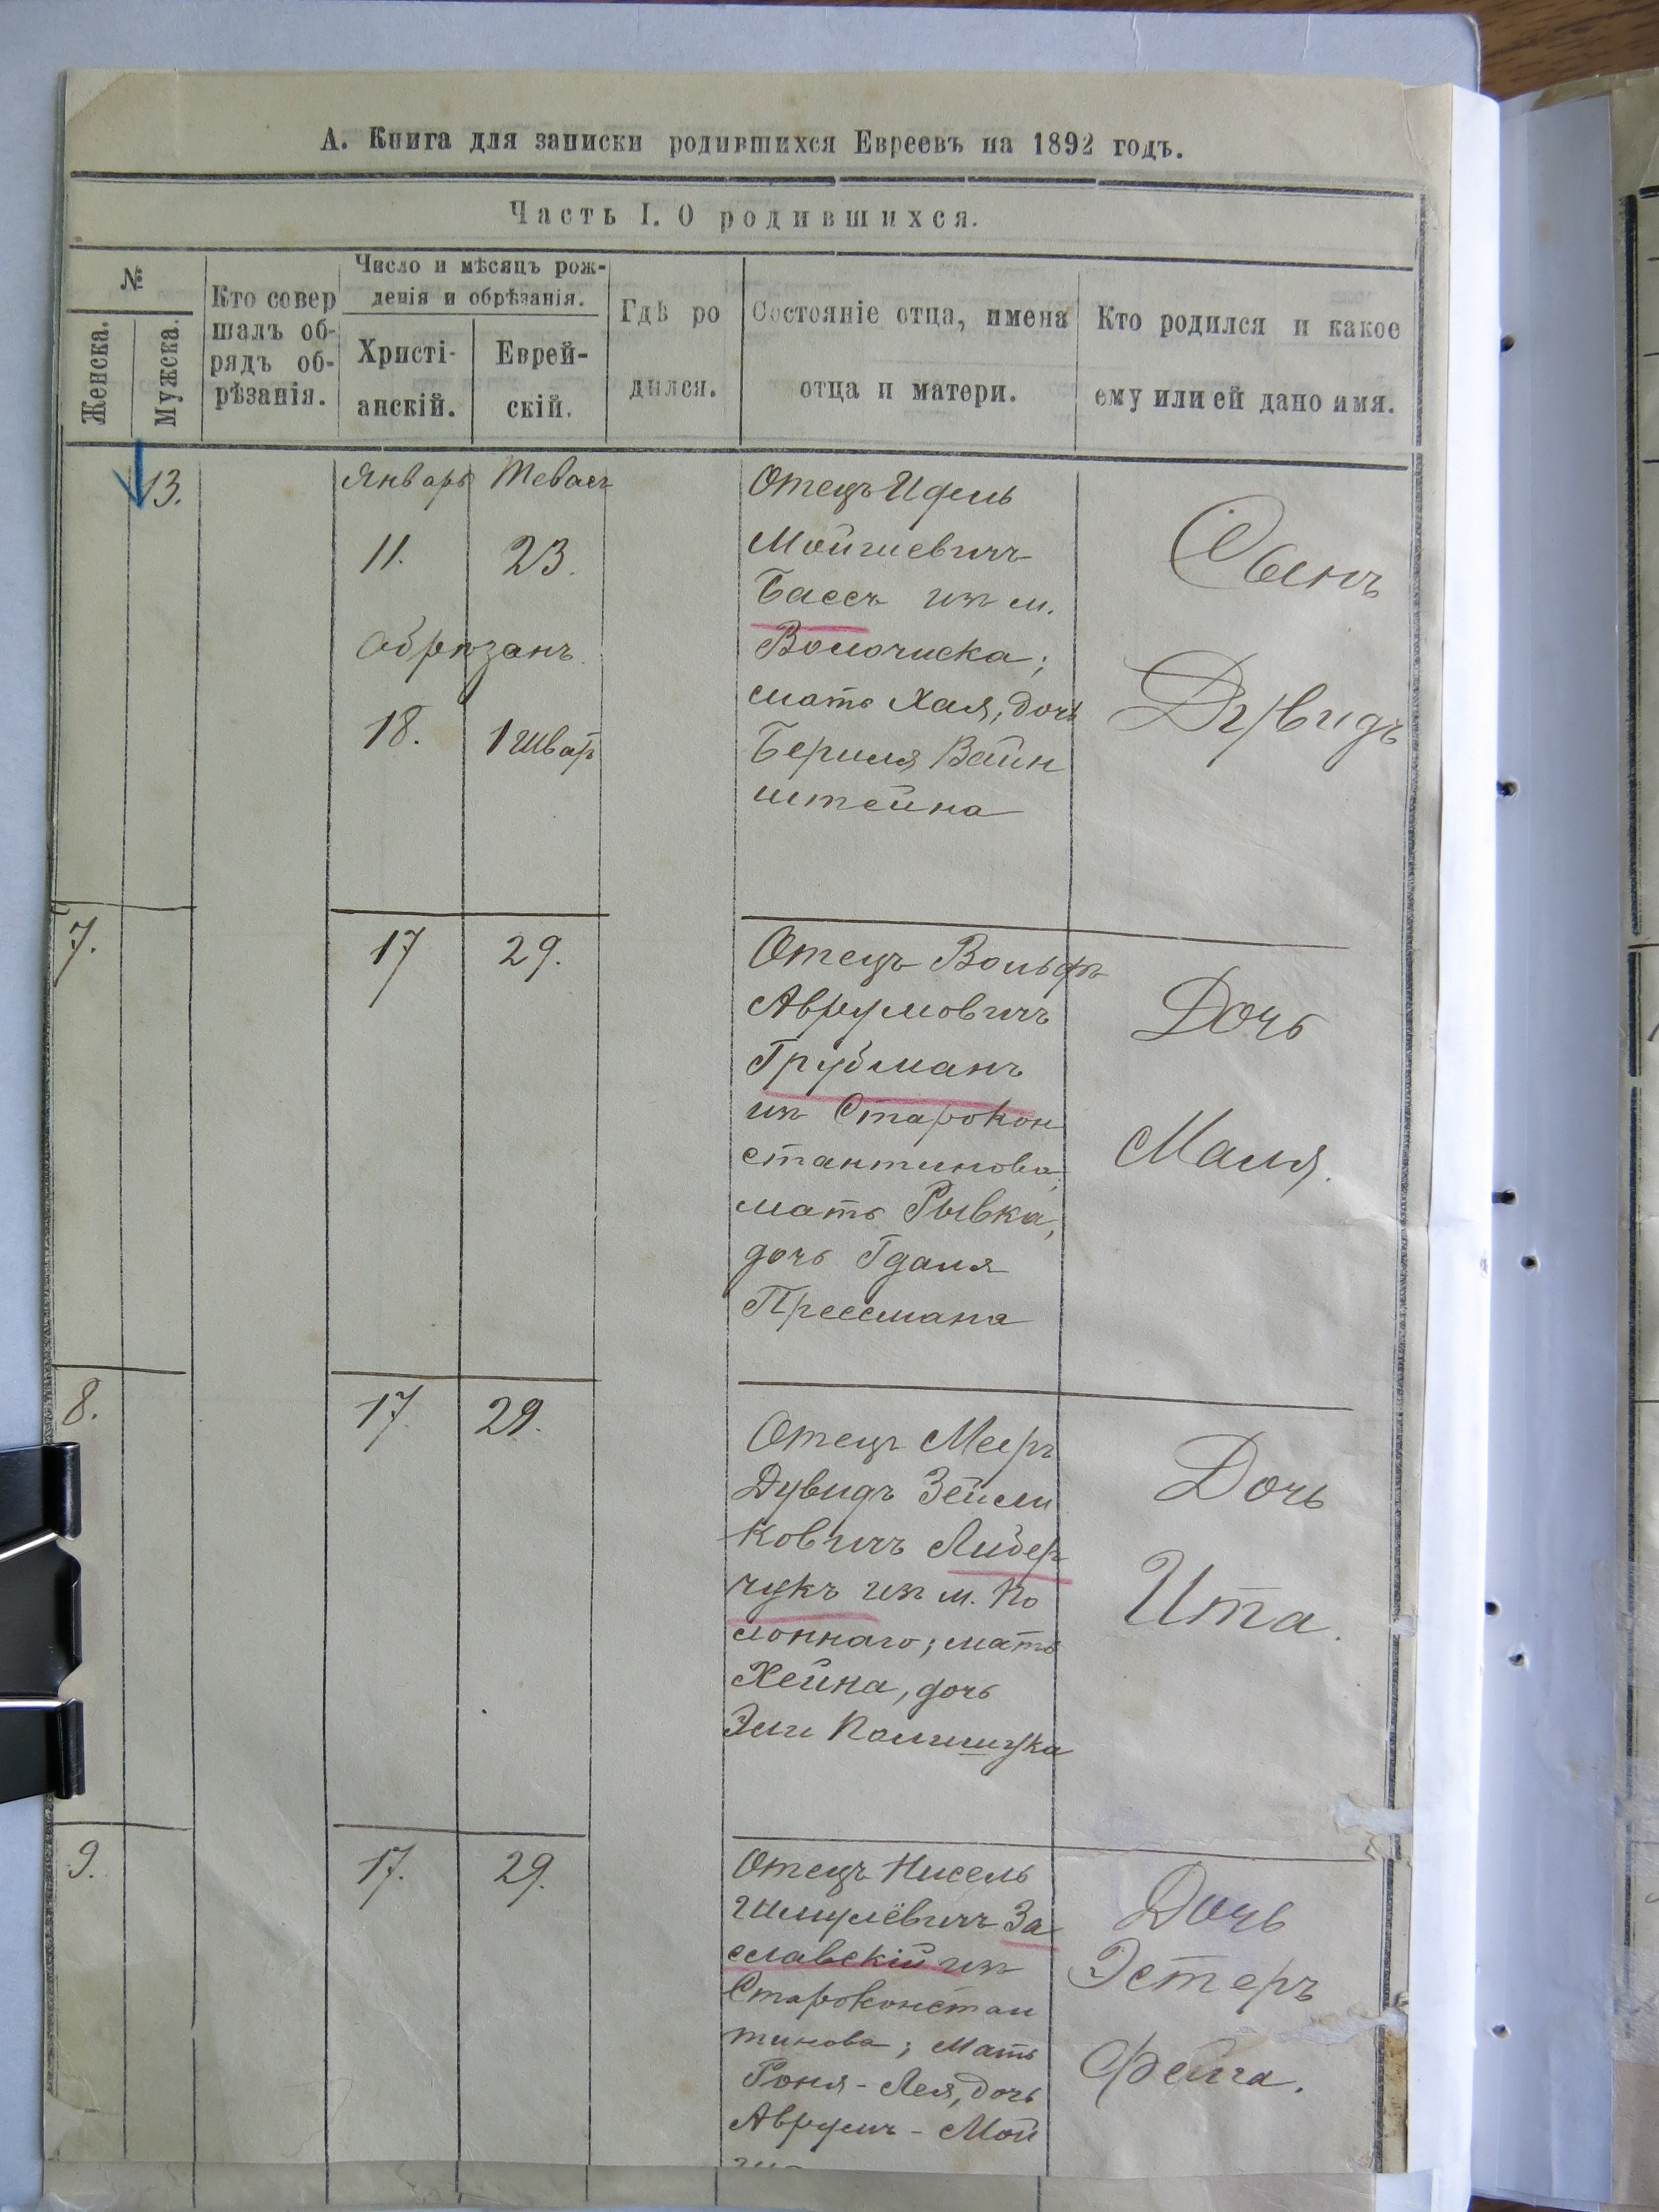 А. Книга для записки родившихся Евреевъ на 1892 годъ.
Часть I. О родившихся.
№
Женска.
Мужска.
Кто совер
шалъ об-
рядъ об-
рѣзанія.
Число и мѣсяцъ рож-
денія и обрѣзанія.
Христі-
анскій.
Еврей-
скій.
Гдѣ ро
дился.
Состояніе отца, имена
отца и матери.
Кто родился и какое
ему или ей дано имя.
13.
Январь
11.
Обрѣзанъ
18.
Тевасъ
23.
1 Шватъ
Отецъ Идель
Мойшевичъ
Бассъ изъ м.
Волочиска;
мать Хая, дочь
Берыля Вайн
штейна
Сынъ
Дувидъ
7.
17
29.
Отецъ Вольфъ
Аврумовичъ
Грубманъ
изъ Старокон
стантинова;
мать Рывка,
дочь Гдаля
Прессмана
Дочь
Маля.
8.
17.
29.
Отецъ Мееръ
Дувидъ Зейли
ковичъ Лидер
чукъ изъ м. По
лоннаго; мать
Хейна, дочь
Эли Полищука
Дочь
Ита.
9.
17.
29.
Отецъ Нисель
Шмулёвичъ За
славскій изъ
Староконстан
тинова; Мать
Роня - Лея, дочь
Аврумъ - Мой
Дочь
Эстеръ
Фейга.